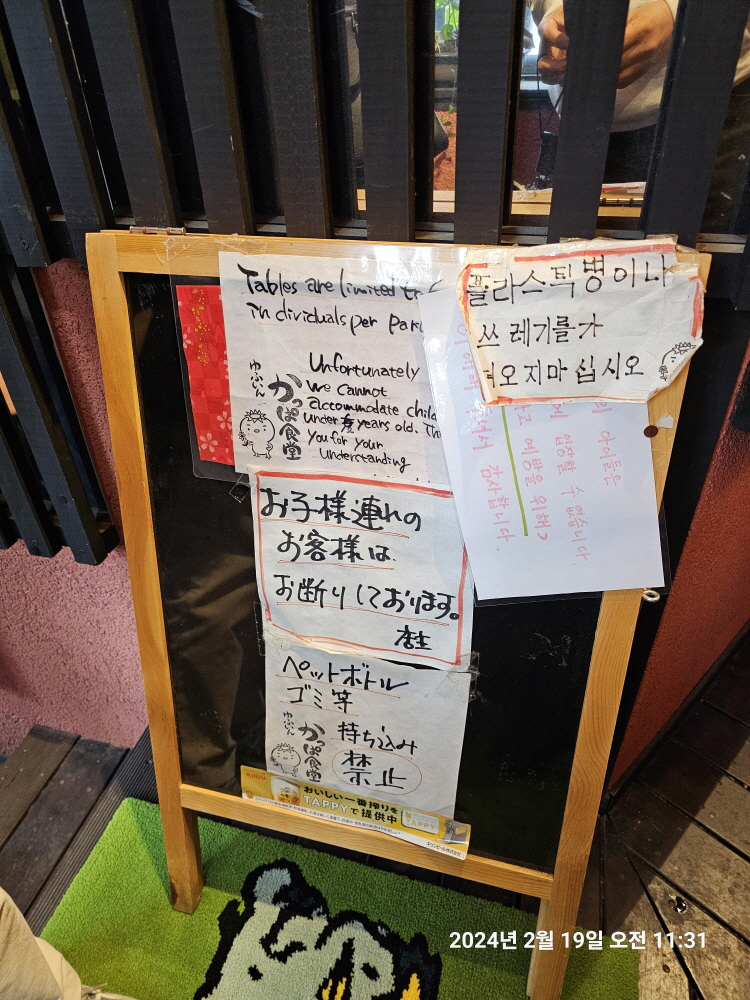 Tables are limited to
individuals per
Unfortunately
we cannot
accommodate
under years old.
you for your
Understanding
ゆふいん
かっぱ食堂
お子様連れの
お客様は
お断りしております。
店主
ペットボトル
ゴミ等
持ち込み
禁止
ゆふいん
かっぱ食堂
おいしい一番搾りを
TAPPYで提供中
TAPPY
キリンビール株式会社
플라스틱병이나
쓰레기를가
오지마십시오
아이들은
입장할 수 없습니다.
예방을 위해
감사합니다.
2024년 2월 19일 오전 11:31